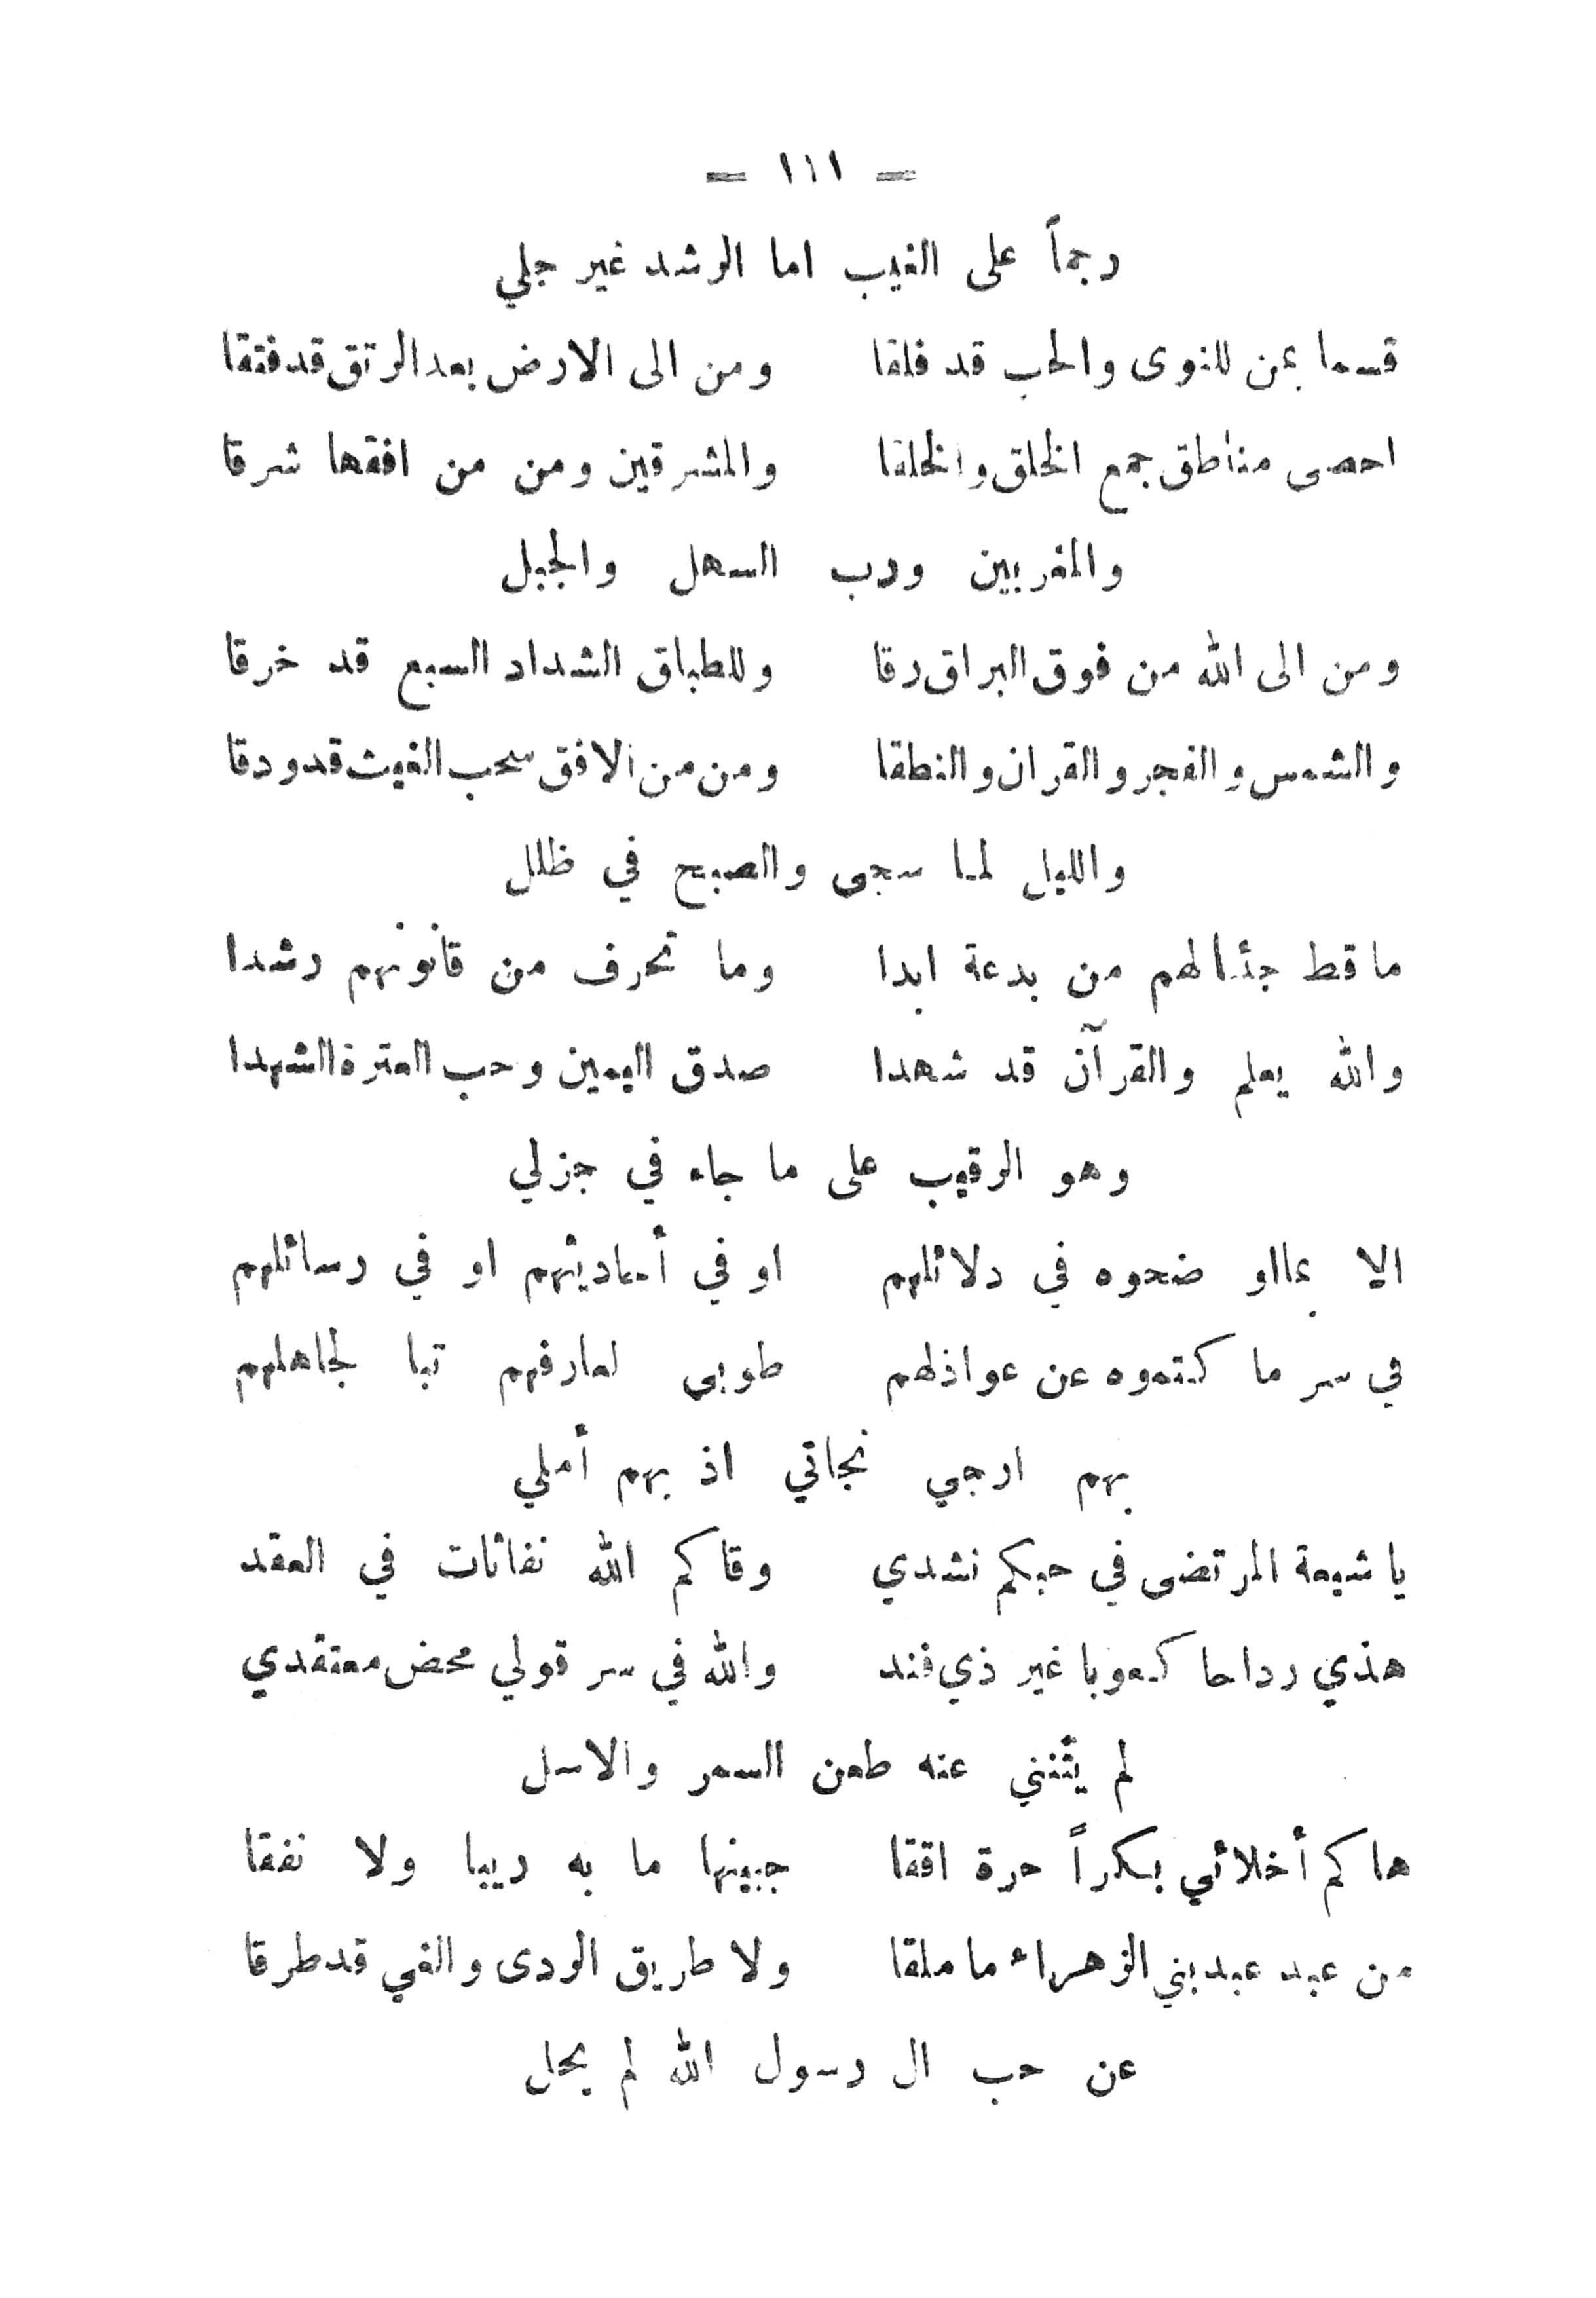 = ١١١ =
رجماً على الغيب اما الرشد غير جلي
قسما بمن للنوى والحب قد فلقا ومن الى الارض بعد الرتق قد فتقا
احصى مناطق جمع الخلق والخلقا والمشرقين ومن من افقها شرقا
والمغربين ورب السهل والجبل
ومن الى الله من فوق البراق رقا وللطباق الشداد السبع قد خرقا
والشمس والفجر والقران والنطقا ومن من الافق سحب الغيث قد ودقا
والليل لما سجى والصبح في ظلل
ما قط جئنا لهم من بدعة ابدا وما تحرف من قانونهم رشدا
والله يعلم والقرآن قد شهدا صدق اليمين وحب العترة الشهدا
وهو الرقيب على ما جاء في جزلي
الا بما او ضحوه في دلائلهم او في أحاديثهم او في رسائلهم
في سر ما كتموه عن عواذلهم طوبى لعارفهم تبا لجاهلهم
بهم ارجي نجاتي اذ بهم أملي
يا شيعة المرتضى في حبكم نشدي وقاكم الله نفاثات في العقد
هذي رداحا كعوبا غير ذي فند والله في سر قولي محض معتقدي
لم يثنني عنه طعن السمر والاسل
هاكم أخلائي بكراً حرة افقا جبينها ما به ريبا ولا نفقا
من عبد عبد بني الزهراء ما ملقا ولا طريق الردى والغي قد طرقا
عن حب ال رسول الله لم يحل